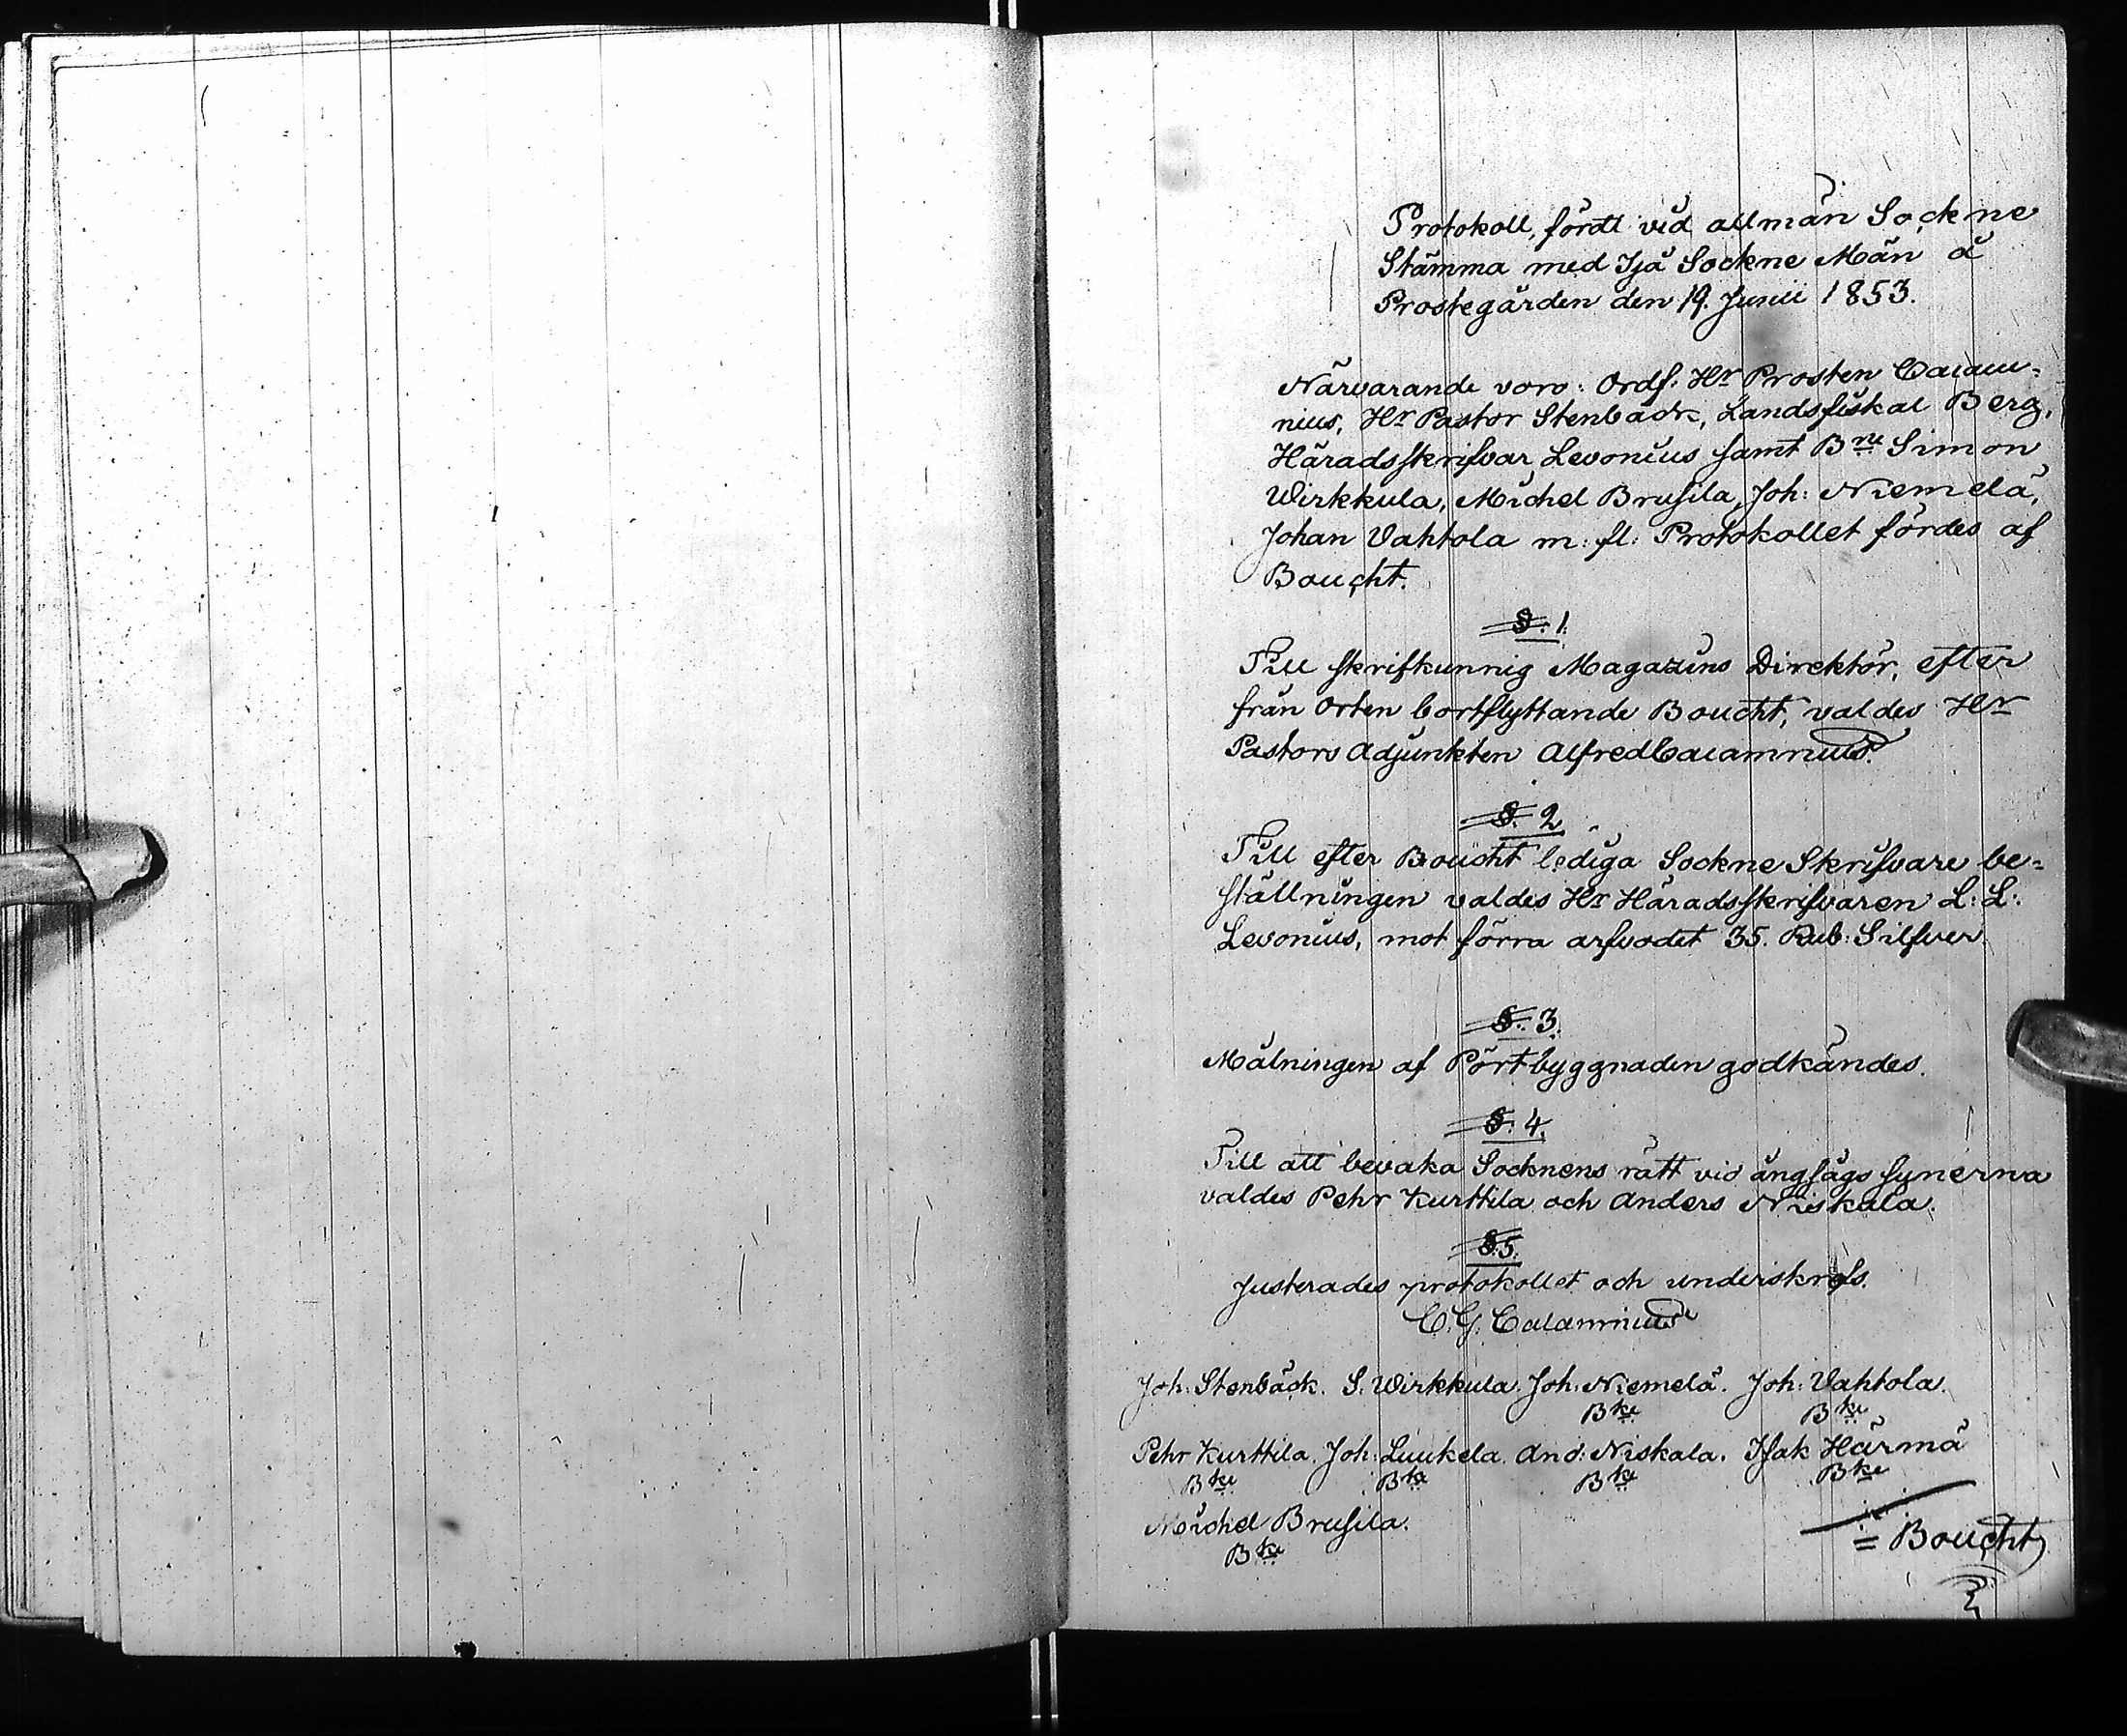 Protokoll, fördt vid allmän Sockne
Stämma med Ijå Sockne Män å
Prostegården den 19. Junii 1853.
Närvarande voro: Ordf: Hr Prosten Calam-
nius, Hr Pastor Stenbäck, Landsfiskal Berg,
Häradsskrifvar Levonius samt Bne Simon
Wirkkula, Michel Brusila, Joh: Niemelä,
Johan Vahtola m: fl: Protokollet fördes af
Boucht.
§. 1.
Till skrifkunnig Magazins Direktör, efter
från Orten bortflyttande Boucht, valdes Hr
Pastors Adjunkten Alfred Calamnius.
§. 2
Till efter Boucht lediga Sockne Skrifvare be-
ställningen valdes Hr Häradsskrifvaren L: L:
Levonius, mot förra arfvodet 35. Rub: Silfver.
§. 3.
Målningen af Pörtbyggnaden godkändes.
§. 4.
Till att bevaka Socknens rätt vid ångsågs synerna
valdes Pehr Kurttila och Anders Niskala.
§. 5.
Justerades protokollet och underskrefs.
C. G. Calamnius
Joh: Stenbäck. S. Wirkkula. Joh: Niemelä. Joh: Vahtola.
Bke Bke
Pehr Kurttila. Joh: Luukela. And: Niskala. Isak Härmä
Bke Bke Bke Bke
Michel Brusila.
Bke
= Boucht